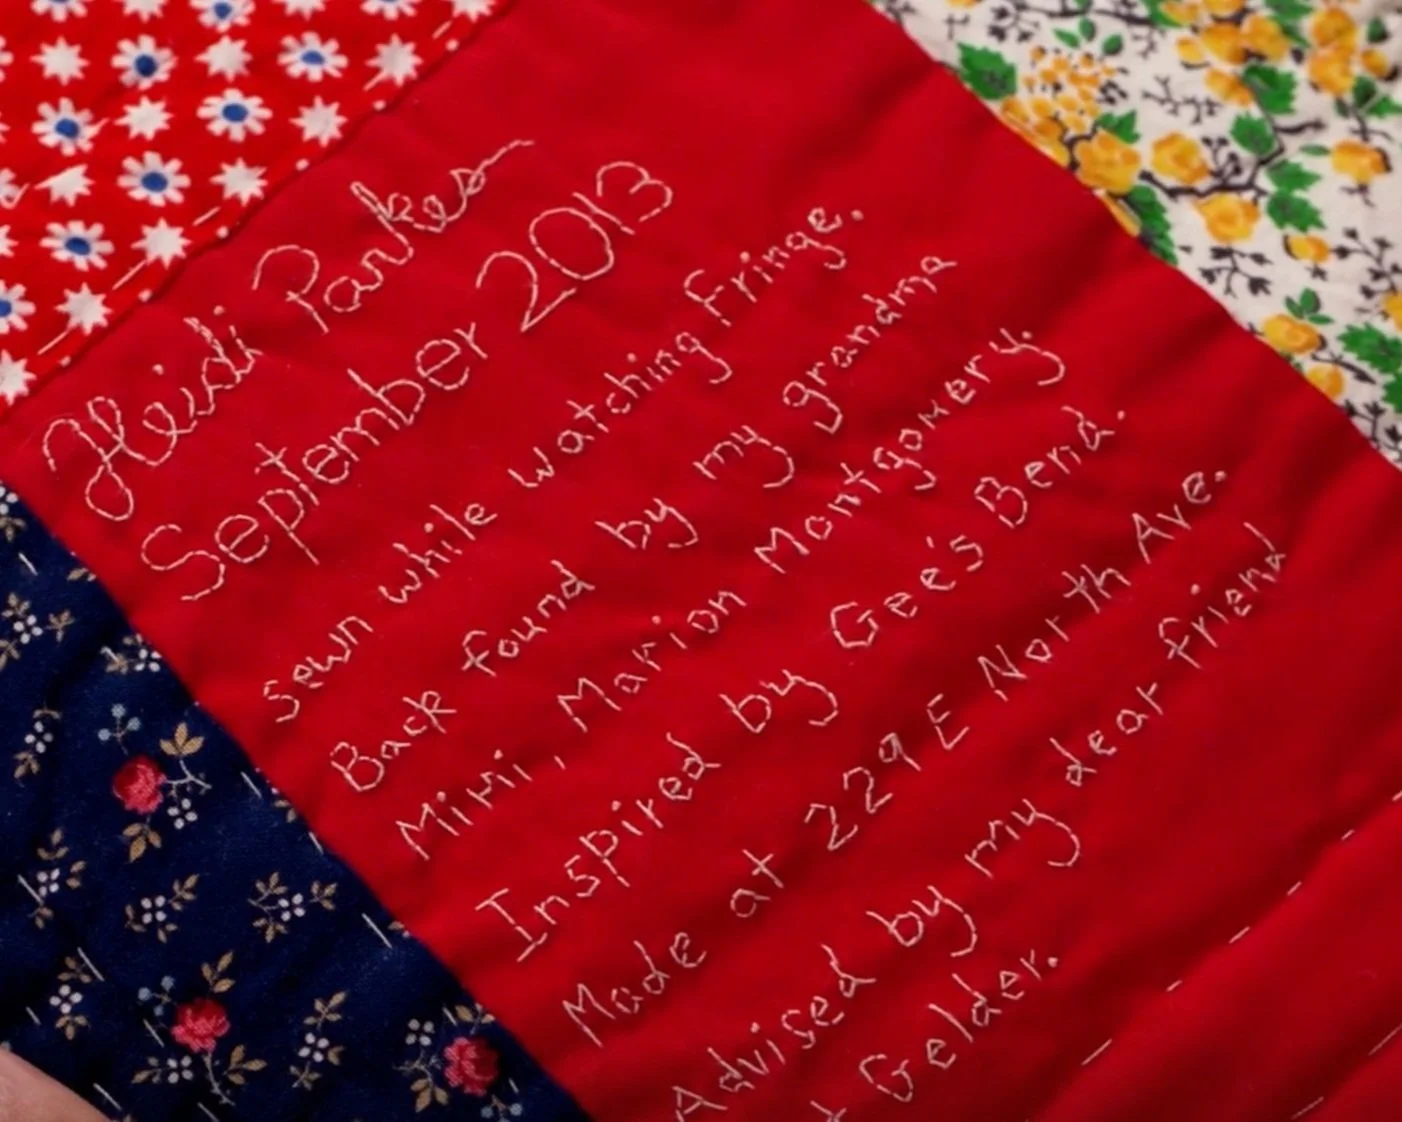 Heidi Parkes
September 2013
Sewn while watching Fringe.
Back found by my grandma
Mimi, Marion Montgomery.
Inspired by Gee's Bend.
Made at 229 E North Ave.
Advised by my dear friend
Gelder.